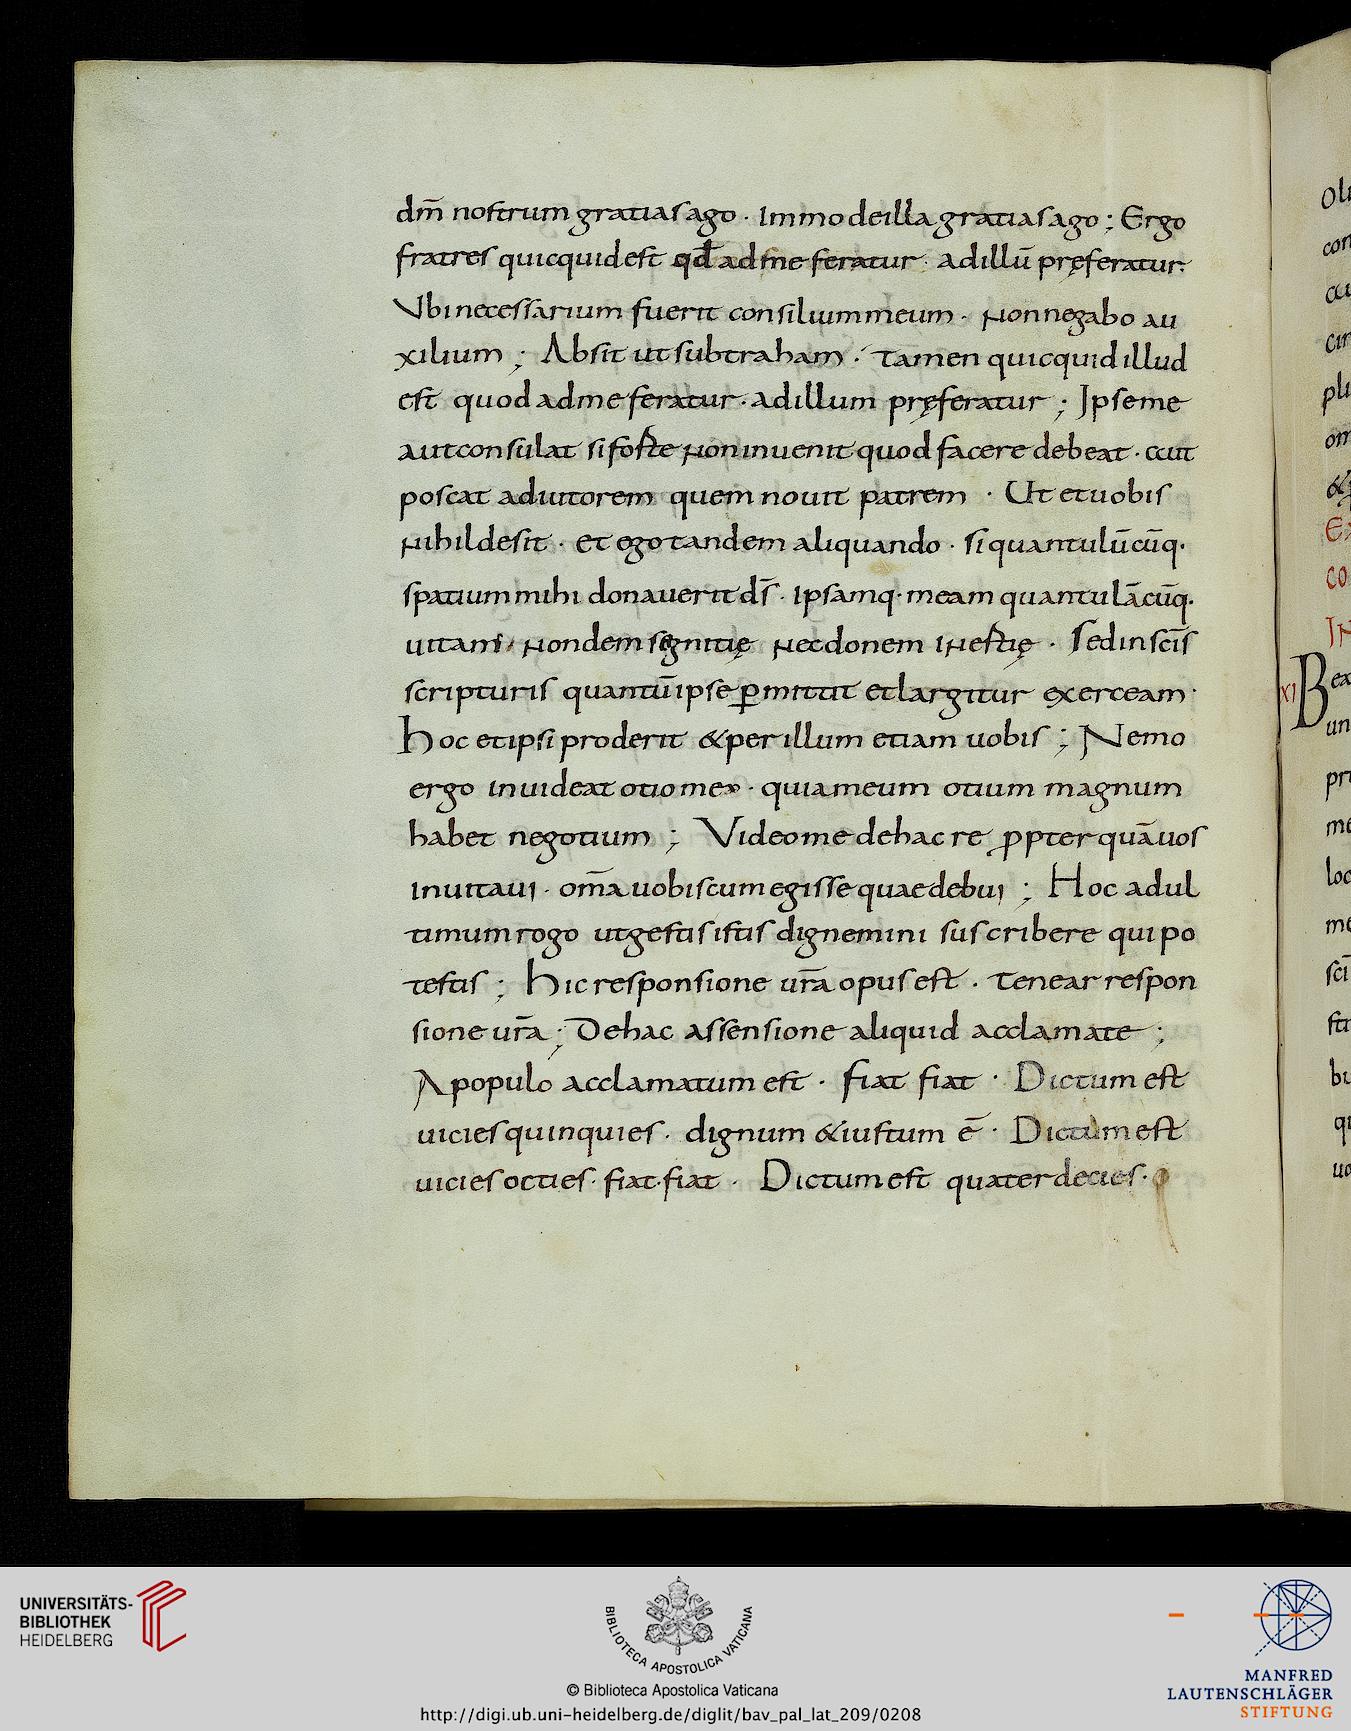 dm̅ nostrum gratias ago · Immo de illa gratias ago ; Ergo
fratres quicquid est qd̅ ad me feratur · ad illu̅ pręferatur.
Vbi necessarium fuerit consilium meum · Non negabo au
xilium ; Absit ut subtraham · Tamen quicquid illud
est quod ad me feratur · ad illum pręferatur ; Ipse me
aut consulat si forte Non inuenit quod facere debeat · aut
poscat adiutorem quem nouit patrem · Ut et uobis
Nihil desit · et ego tandem aliquando · si quantulu̅cu̅q·
spatium mihi donauerit ds̅ · Ipsamq· meam quantula̅cu̅q·
uitam Non dem segnitię Nec donem INertię · Sed in sci̅s
scripturis quantu̅ ipse ꝑmittit et largitur exerceam ·
Hoc et ipsi proderit & per illum etiam uobis ; Nemo
ergo inuideat otio meo · quia meum otium magnum
habet negotium ; Video me de hac re ꝓpter qua̅ uos
inuitaui · om̅a uobiscum egisse quae debui ; Hoc ad ul
timum rogo ut gestis istis dignemini suscribere qui po
testis ; Hic responsione ur̅a opus est · Tenear respon
sione ur̅a ; De hac assensione aliquid acclamate ;
A populo acclamatum est · fiat fiat · Dictum est
uicies quinquies · dignum & iustum e̅ · Dictum est
uicies octies · fiat · fiat · Dictum est quater decies ·
XI
B
UNIVERSITÄTS-
BIBLIOTHEK
HEIDELBERG
BIBLIOTECA APOSTOLICA VATICANA
© Biblioteca Apostolica Vaticana
http://digi.ub.uni-heidelberg.de/diglit/bav_pal_lat_209/0208
MANFRED
LAUTENSCHLÄGER
STIFTUNG